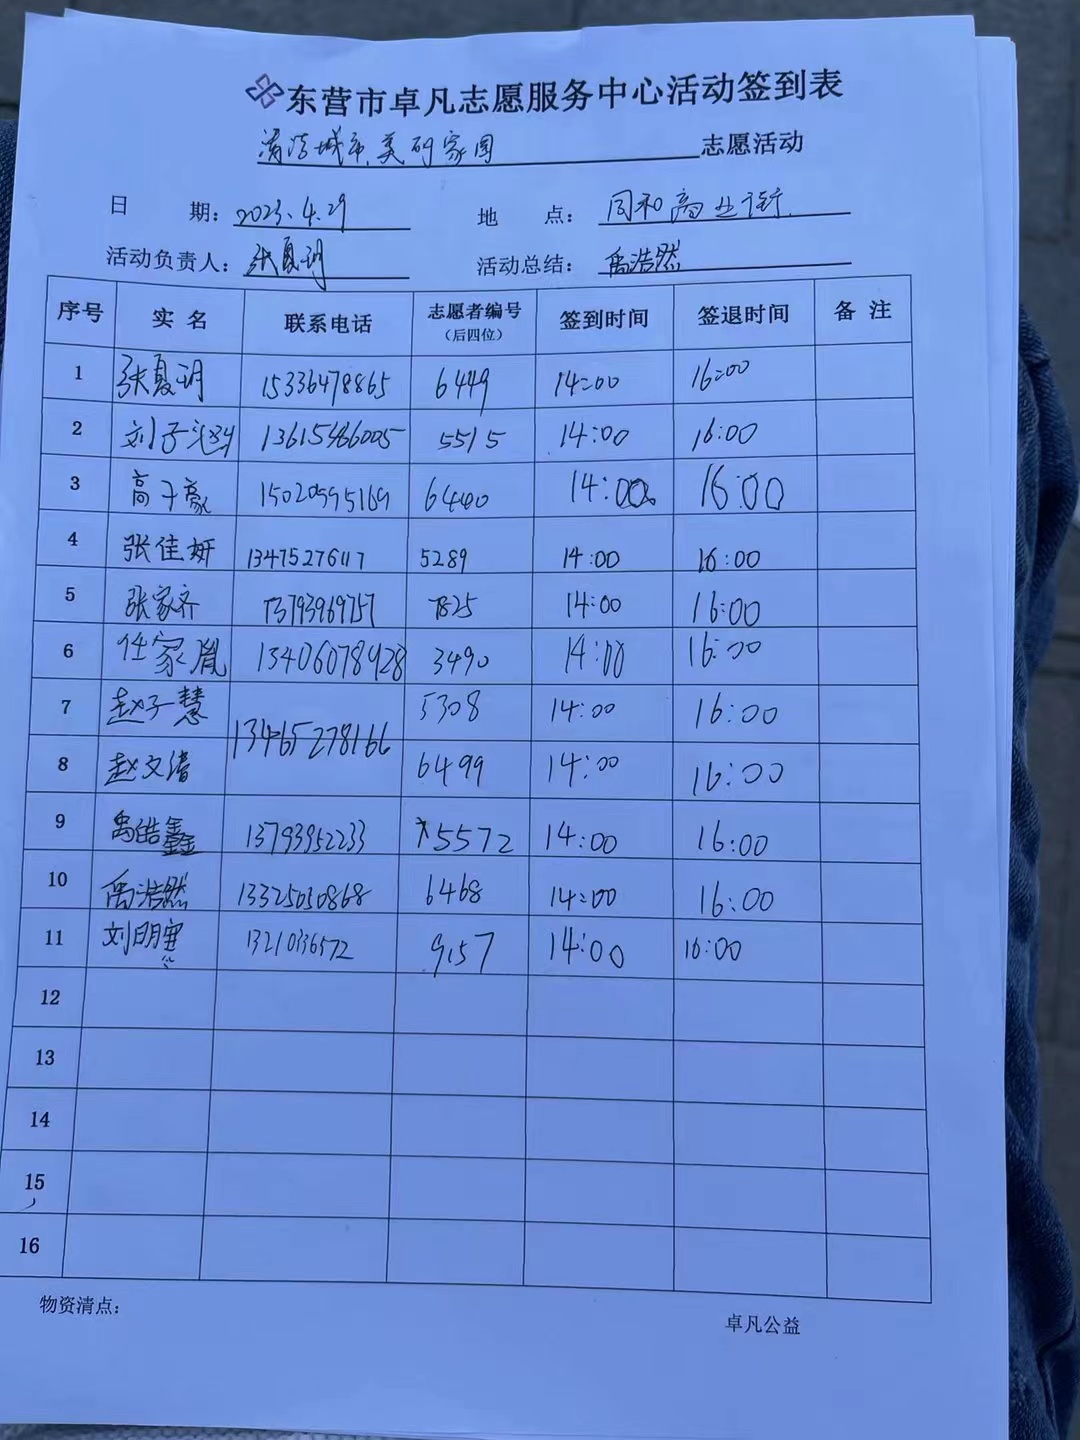 东营市卓凡志愿服务中心活动签到表
清洁城市,美丽家园 志愿活动
日 期: 2023.4.29 地 点: 同和商业街
活动负责人: 张夏玥 活动总结: 禹浩然
序号 实名 联系电话 志愿者编号(后四位) 签到时间 签退时间 备注
1 张夏玥 15336478865 6449 14:00 16:00
2 刘子 13615486005 5515 14:00 16:00
3 高子豪 15020595169 6440 14:00 16:00
4 张佳妍 13475276117 5289 14:00 16:00
5 张家齐 13793969757 7825 14:00 16:00
6 任家胤 13406078928 3490 14:00 16:00
7 赵子慧 13465278166 5308 14:00 16:00
8 赵文清 6499 14:00 16:00
9 禹皓鑫 13793952233 5572 14:00 16:00
10 禹浩然 13325030868 6468 14:00 16:00
11 刘明 9157 14:00 16:00
12
13
14
15
16
物资清点:
卓凡公益